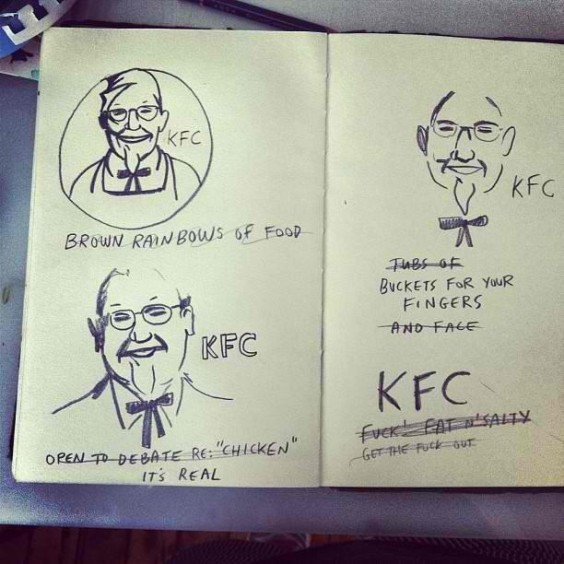 KFC
BROWN RAINBOWS OF FOOD
KFC
OPEN TO DEBATE RE: "CHICKEN"
IT'S REAL
KFC
TUBS OF
BUCKETS FOR YOUR
FINGERS
AND FACE
KFC
FUCK! FAT N' SALTY
GET THE FUCK OUT